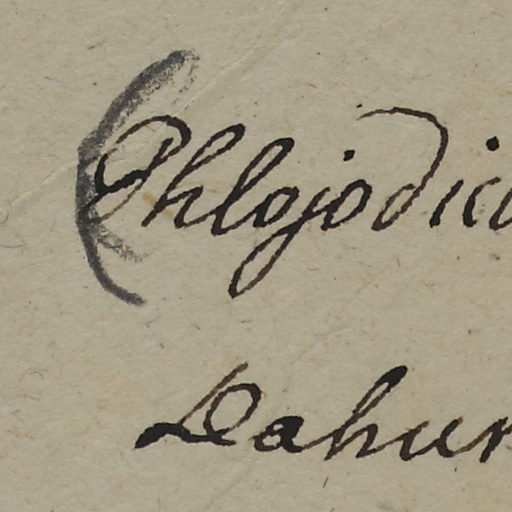 (Phlojodic
Dahur